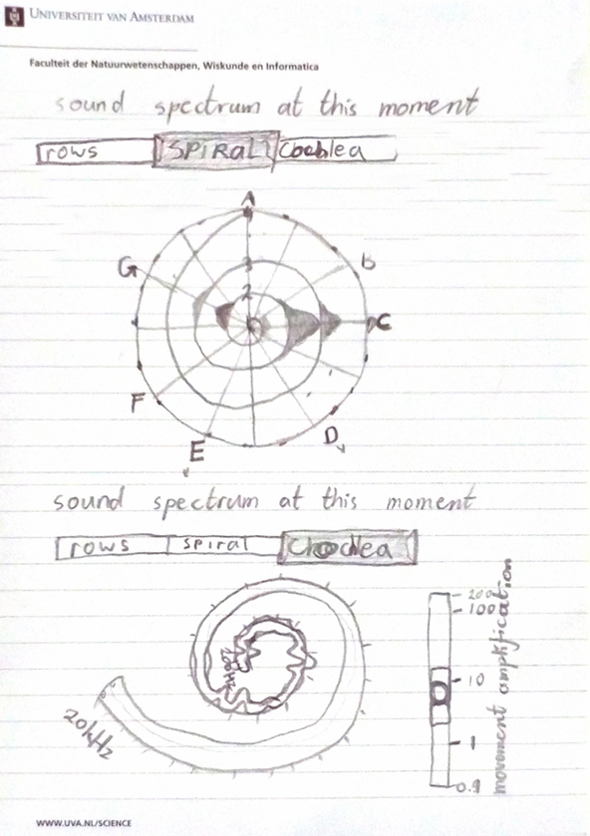 UNIVERSITEIT VAN AMSTERDAM
Faculteit der Natuurwetenschappen, Wiskunde en Informatica
sound spectrum at this moment
rows SPIRAL Cochlea
A
B
G
3
2
C
F
D
E
sound spectrum at this moment
rows spiral Cochlea
200
100
10
1
0.1
movement amplification
20kHz
WWW.UVA.NL/SCIENCE